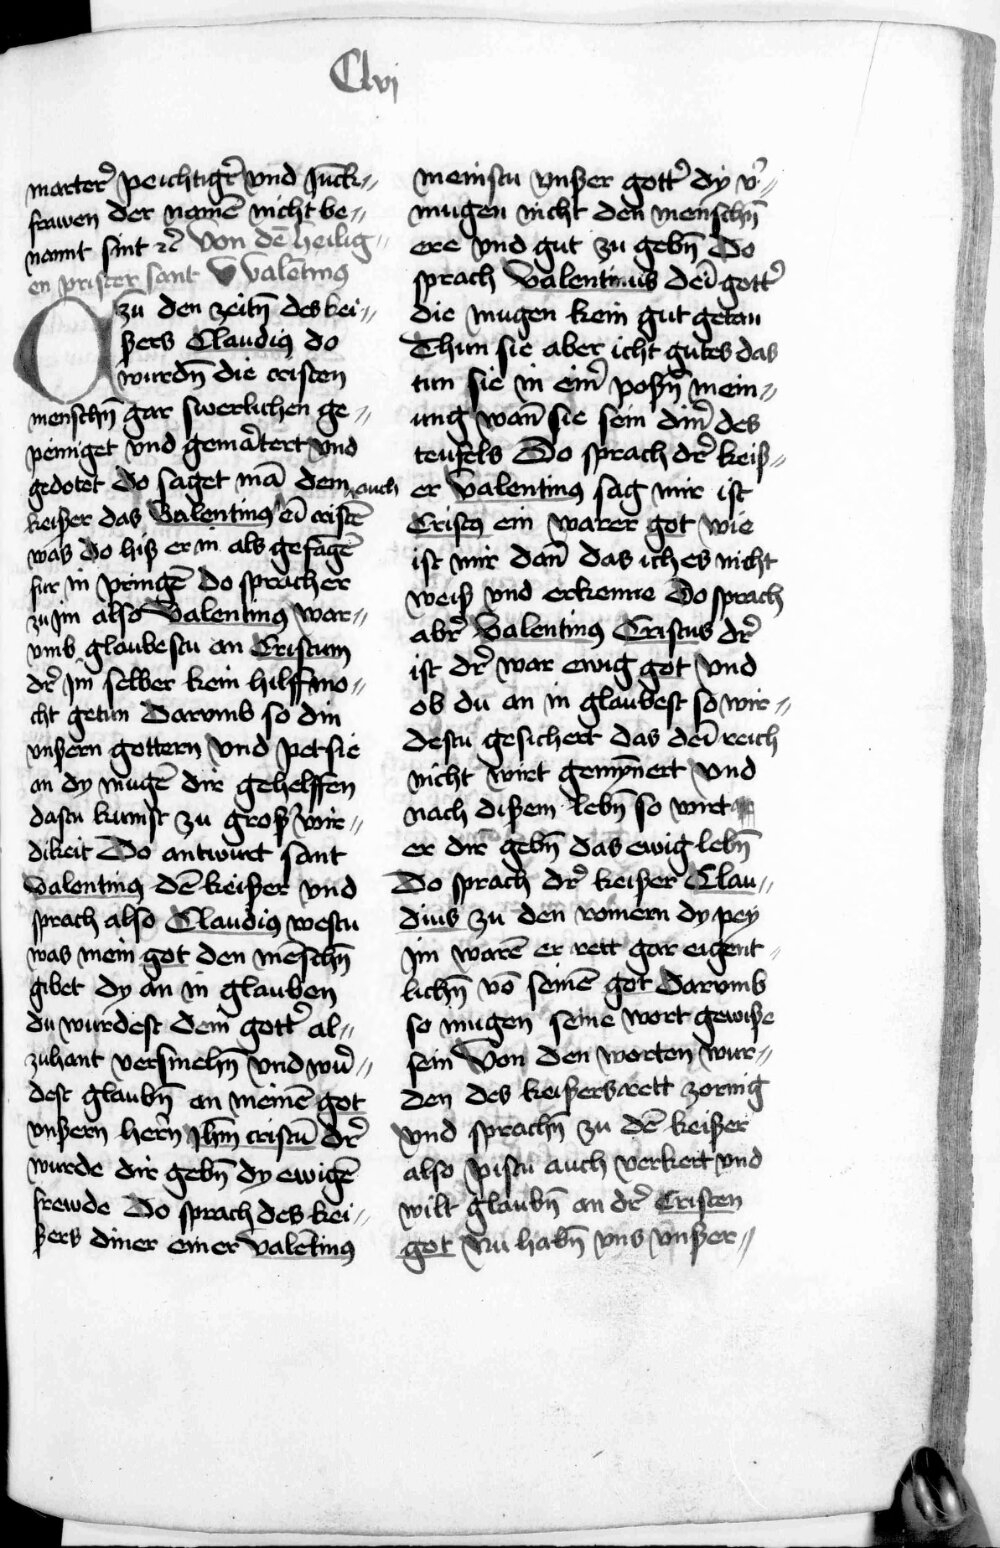 Clvj
marterẽ peichtigr̃ vnd Junck〃
frawen der namẽ nicht be〃
nannt sint ꝛc̃ Von dẽ heilig〃
en prister sant Valẽtinꝰ
Zu den zeitn̄ des kei〃
ßers Claudiꝰ do
wurdn̄ die cristen
menschn̄ gar swerlichen ge〃
peiniget vnd gemartert vnd
gedotet Do saget mā dem auch
keißer das Valentinꝰ eī cristẽ
was Do hiß er in als gefagẽ
fur in pringẽ Do sprach er
zu jm also Valentinꝰ war〃
vmb glaubestu an Cristum
dr̃ Jm selber kein hilff mo〃
cht getun Darvmb so din
vnßern gottern vnd pet sie
an dy mugẽ dir gehelffen
dastu kumst zu groß wir〃
dikeit Do antwurt sant
Valentinꝰ dẽ keißer vnd
sprach also Claudiꝰ westu
was mein got den mẽschn̄
gibet dy an in glauben
du wurdest dem gottr̃ al〃
zuhant versmehn̄ vnd wur̃〃
dest glaubn̄ an meinẽ got
vnßern herñ Jhm̄ cristū dr̃
wurde dir gebn̄ dy ewigẽ
frewde Do sprach des kei〃
ßers diner einer Valẽtinꝰ
meinstu vnßer gottr̃ dy v̓〃
mugen nicht den menschn̄
ere vnd gut zu gebn̄ Do
sprach Valentinus deī gottr̃
die mugen kein gut getan
Thun sie aber icht gutes das
tun sie in eim̃ poßn̄ mein〃
ung wañ sie sein dim̃ des
teufels Do sprach dr̃ keiß〃
er Valentinꝰ sag mir ist
Cristꝰ ein warer got wie
ist mir dañ das ich es nicht
weiß vnd erkenne Do sprach
abr̃ Valentinꝰ Cristus dr̃
ist dr̃ war ewig got vnd
ob du an in glaubest so wir〃
destu gesichert das deī reich
nicht wirt gemynnert vnd
nach dißem lebn̄ so wirt
er dir gebn̄ das ewig lebn̄
Do sprach dr̃ keißer Clau〃
dius zu den romern dy pey
jm warẽ er rett gar eigent〃
lichn̄ vō seinẽ got Darvmb
so mugen seine wort gewiße
sein Von den worten wur〃
den des keißers rett zornig
vnd sprachn̄ zu dẽ keißer
also pistu auch verkert vnd
wilt glaubn̄ an dr̃ Cristen
got Nu habn̄ vns vnßer〃